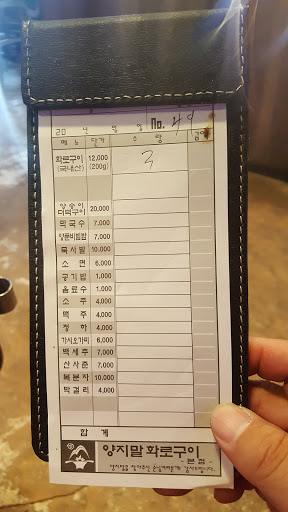 20 년 월 일 No. 49
메뉴 단가 수량 금액
화로구이 12,000 3
(국내산) (200g)
양송이
더덕구이 20,000
막국수 7,000
양푼비빔밥 7,000
묵사발 10,000
소면 6,000
공기밥 1,000
음료수 1,000
소주 4,000
맥주 4,000
청하 4,000
가시오가피 6,000
백세주 7,000
산사춘 7,000
복분자 10,000
막걸리 4,000
합계
양지말 화로구이
- 본점 -